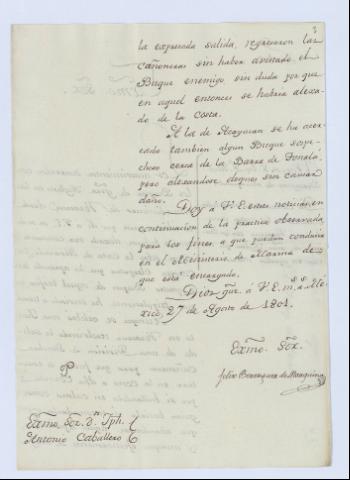 la expresada salida, regresaron las
cañoneras sin haber avistado el
Buque enemigo, sin duda por que
en aquel entonces se habria alexa-
do de la Costa.
A la de Acayucan se ha acer-
cado tambien algun Buque sospe-
choso cerca de la Barra de Tonalá,
pero alexandose despues sin causar
daño.
Doy á V.E. estas noticias en
continuacion de la practica observada
para los fines, a que puedan conducir
en el Ministerio de Marina de
que está encargado.
Dios gũe. á V.E. m.s a.s Mé-
xico 27 de Agosto de 1801.
Exmo. Sor.
Felix Berenguer de Marquina
Exmo. Sor. Dn. Jph.
Antonio Caballero